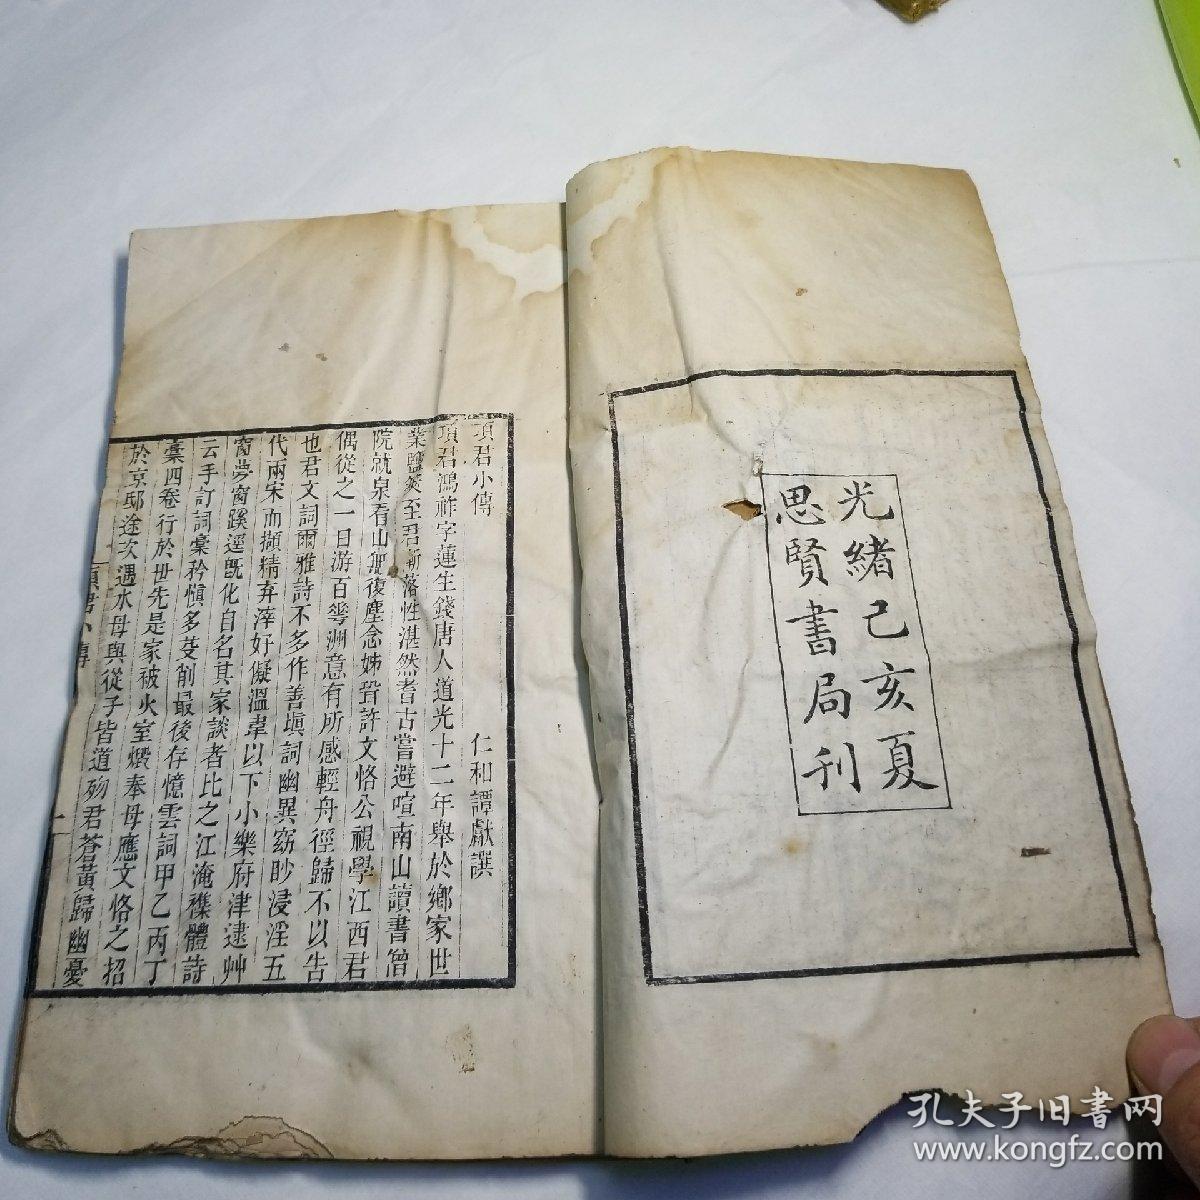 光緒己亥夏
思賢書局刊
項君小傳
仁和譚獻譔
項君鴻祚字蓮生錢唐人道光十二年舉於鄉家世
業鹽筴至君漸落性湛然耆古嘗避喧南山讀書僧
院就泉看山無復塵念姊壻許文恪公視學江西君
偶從之一日游百花洲意有所感輕舟徑歸不以告
也君文詞爾雅詩不多作善塡詞幽異窈眇浸淫五
代兩宋而擷精弃滓好儗溫韋以下小樂府津逮艸
窗夢窗蹊逕旣化自名其家談者比之江淹襍體詩
云手訂詞稾矜愼多芟削最後存憶雲詞甲乙丙丁
稾四卷行於世先是家被火室燬奉母應文恪之招
於京邸途次遇水母與從子皆道歾君蒼黃歸幽憂
項君小傳
一
孔夫子旧书网
www.kongfz.com